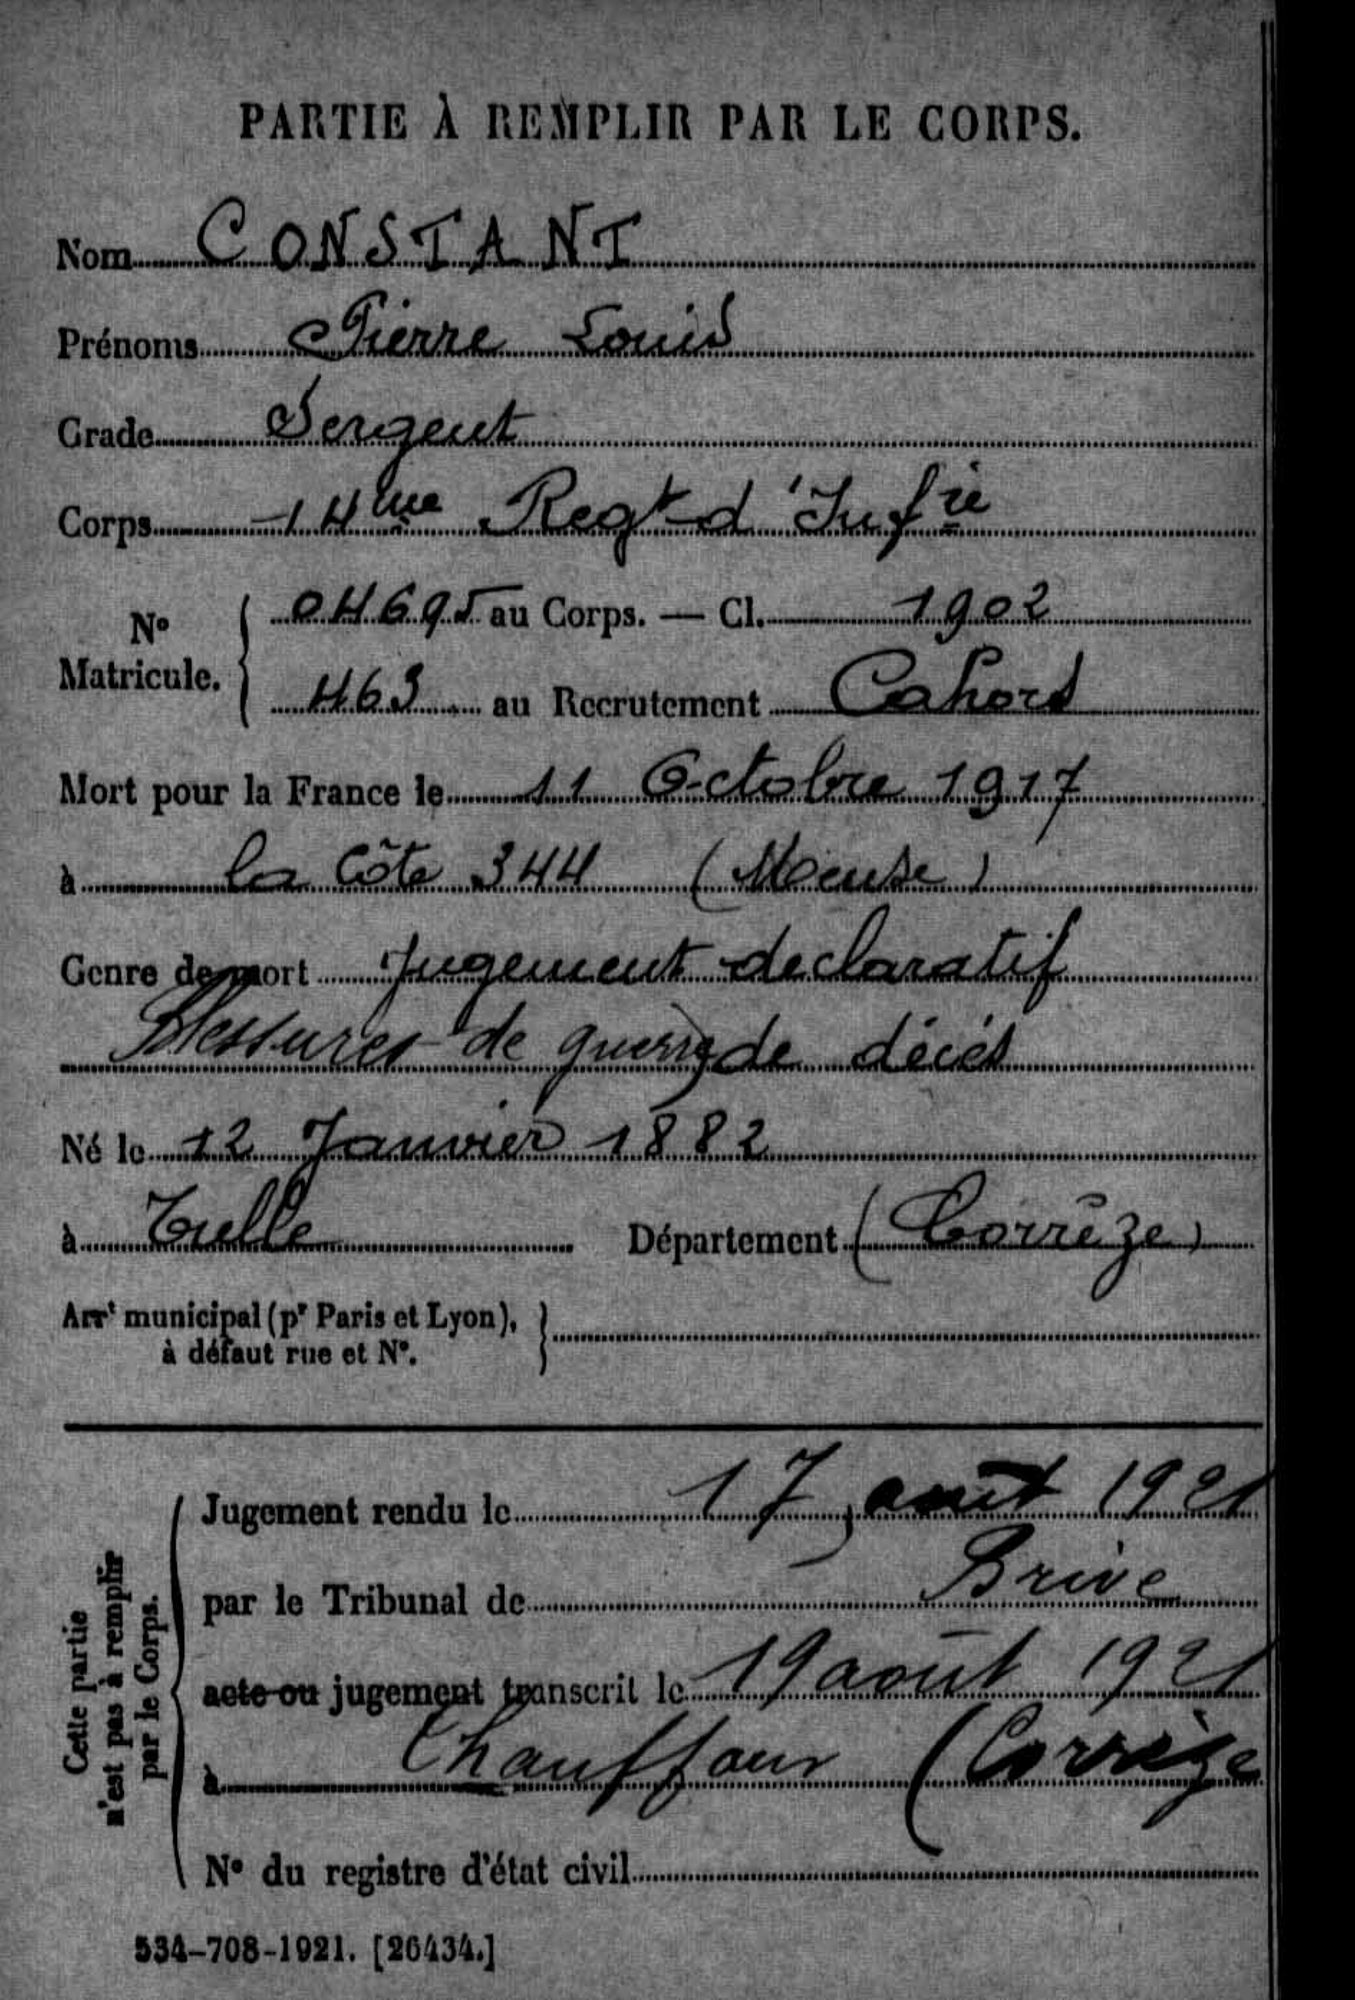 PARTIE À REMPLIR PAR LE CORPS.
Nom CONSTANT
Prénoms Pierre Louis
Grade Sergent
Corps 14me Regt d'Infrie
No Matricule. { 04695 au Corps. — Cl. 1902
463 au Recrutement Cahors
Mort pour la France le 11 Octobre 1917
à la Côte 344 (Meuse)
Genre de mort Jugement declaratif
Blessures de guerre de décès
Né le 12 Janvier 1882
à Tulle Département (Corrèze)
Arrt municipal (pr Paris et Lyon), }
à défaut rue et No.
Cette partie
n'est pas à remplir
par le Corps.
Jugement rendu le 17 août 1921
par le Tribunal de Brive
acte ou jugement transcrit le 19 août 1921
à Chauffour (Corrèze
No du registre d'état civil
534-708-1921. [26434.]